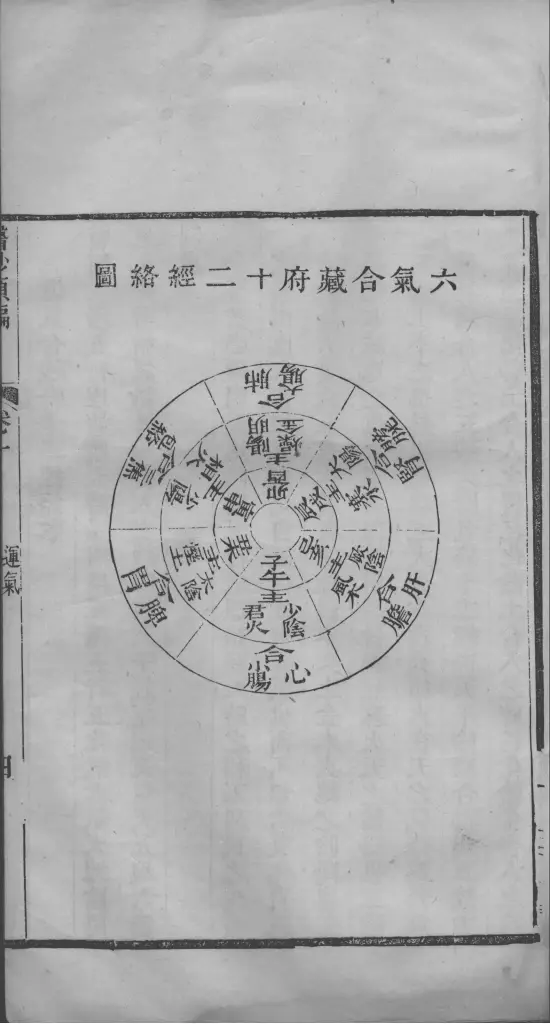 六氣合藏府十二經絡圖
子午
主
少陰
君火
合
心
小腸
丑未
主
太陰
濕土
合
脾
胃
寅申
主
少陽
相火
合
三焦
包絡
卯酉
主
陽明
燥金
合
大腸
肺
辰戌
主
太陽
寒水
合
膀胱
腎
巳亥
主
厥陰
風木
合
肝
膽
類編
運氣
四